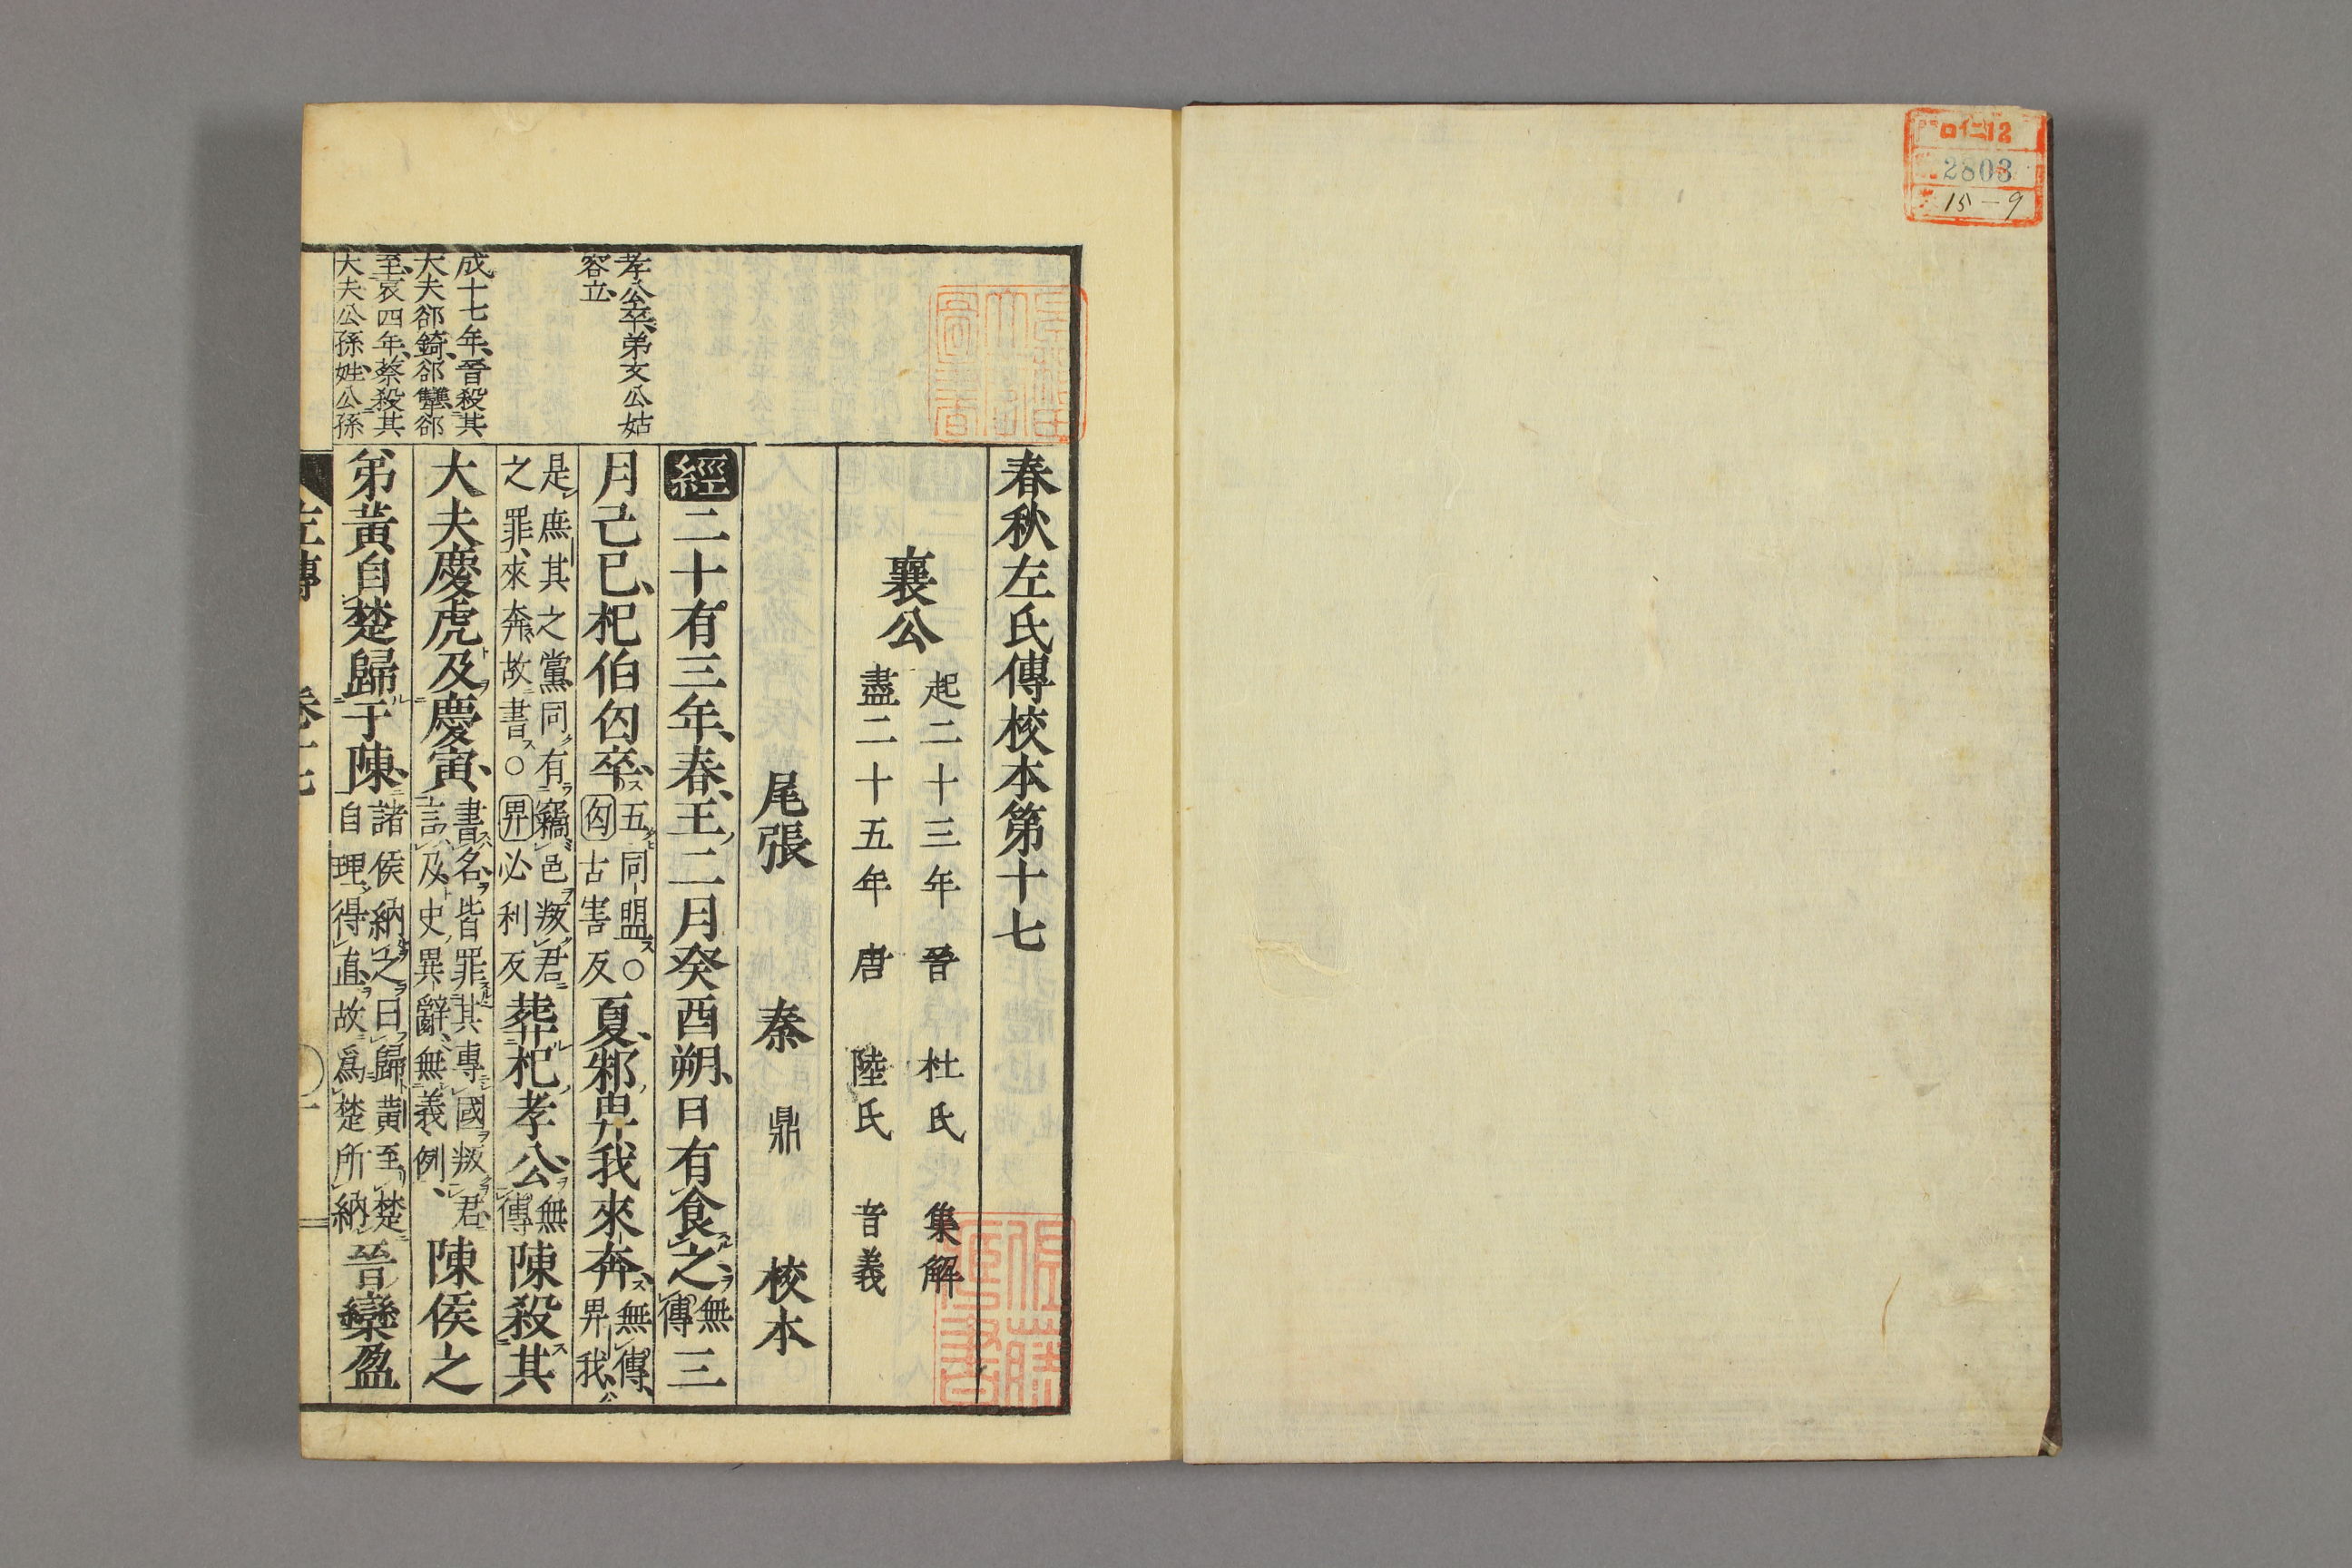 口仁12
2803
15-9
春秋左氏傳校本第十七
襄公
起二十三年 晉 杜氏 集解
盡二十五年 唐 陸氏 音義
尾張 秦 鼎 校本
孝公卒、弟文公姑
容立、
成十七年、晉殺其
大夫郤錡、郤犨、郤
至、哀四年、蔡殺其
大夫公孫姓、公孫
經二十有三年、春、王二月癸酉朔、日有食之、無傳三
月己巳、杞伯匄卒、五同盟○匄古害反夏、邾畀我來奔、無傳、畀我、
是庶其之黨、同有竊邑叛君之罪、來奔故書○畀必利反葬杞孝公、無傳陳殺其
大夫慶虎及慶寅、書名、皆罪其專國叛君、言及、史異辭、無義例、陳侯之
弟黃自楚歸于陳、諸侯納之曰歸、黃至楚自理得直、故爲楚所納晉欒盈
左傳 卷十七 一